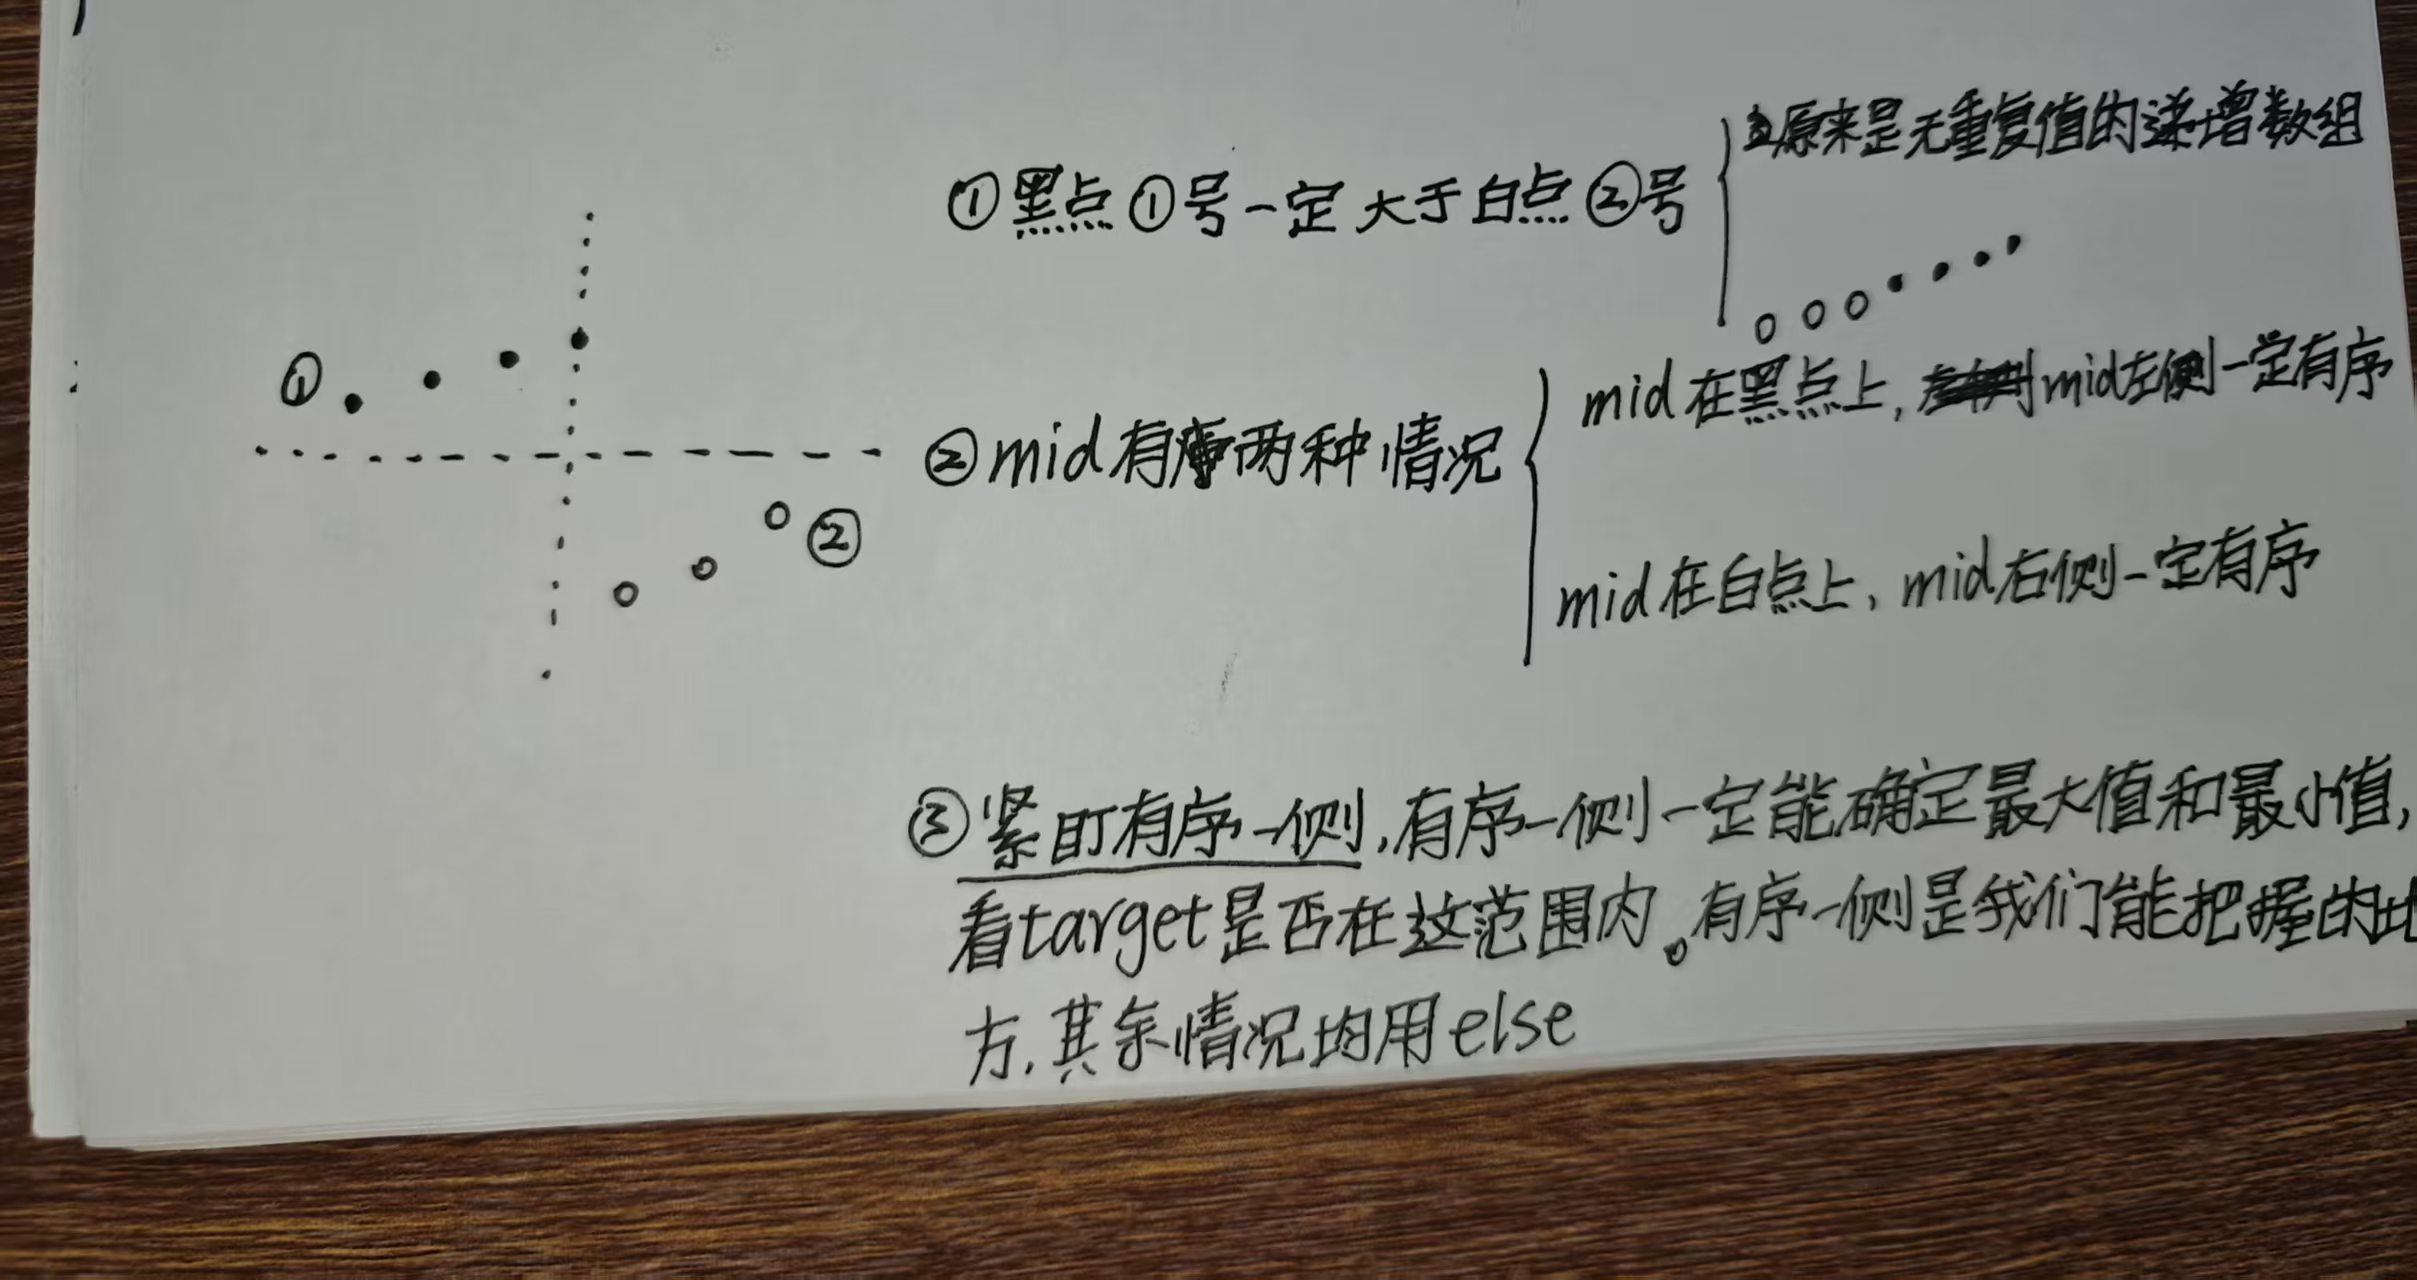 ①黑点①号一定大于白点②号
原来是无重复值的递增数组
①
②
②mid有两种情况
mid在黑点上，mid左侧一定有序
mid在白点上，mid右侧一定有序
③紧盯有序一侧，有序一侧一定能确定最大值和最小值，
看target是否在这范围内。有序一侧是我们能把握的
方，其余情况均用else